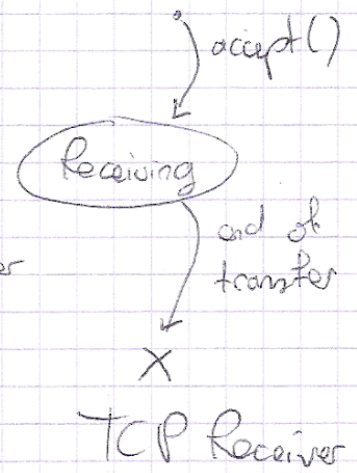 accept()
Receiving
end of
transfer
er
X
TCP Receiver